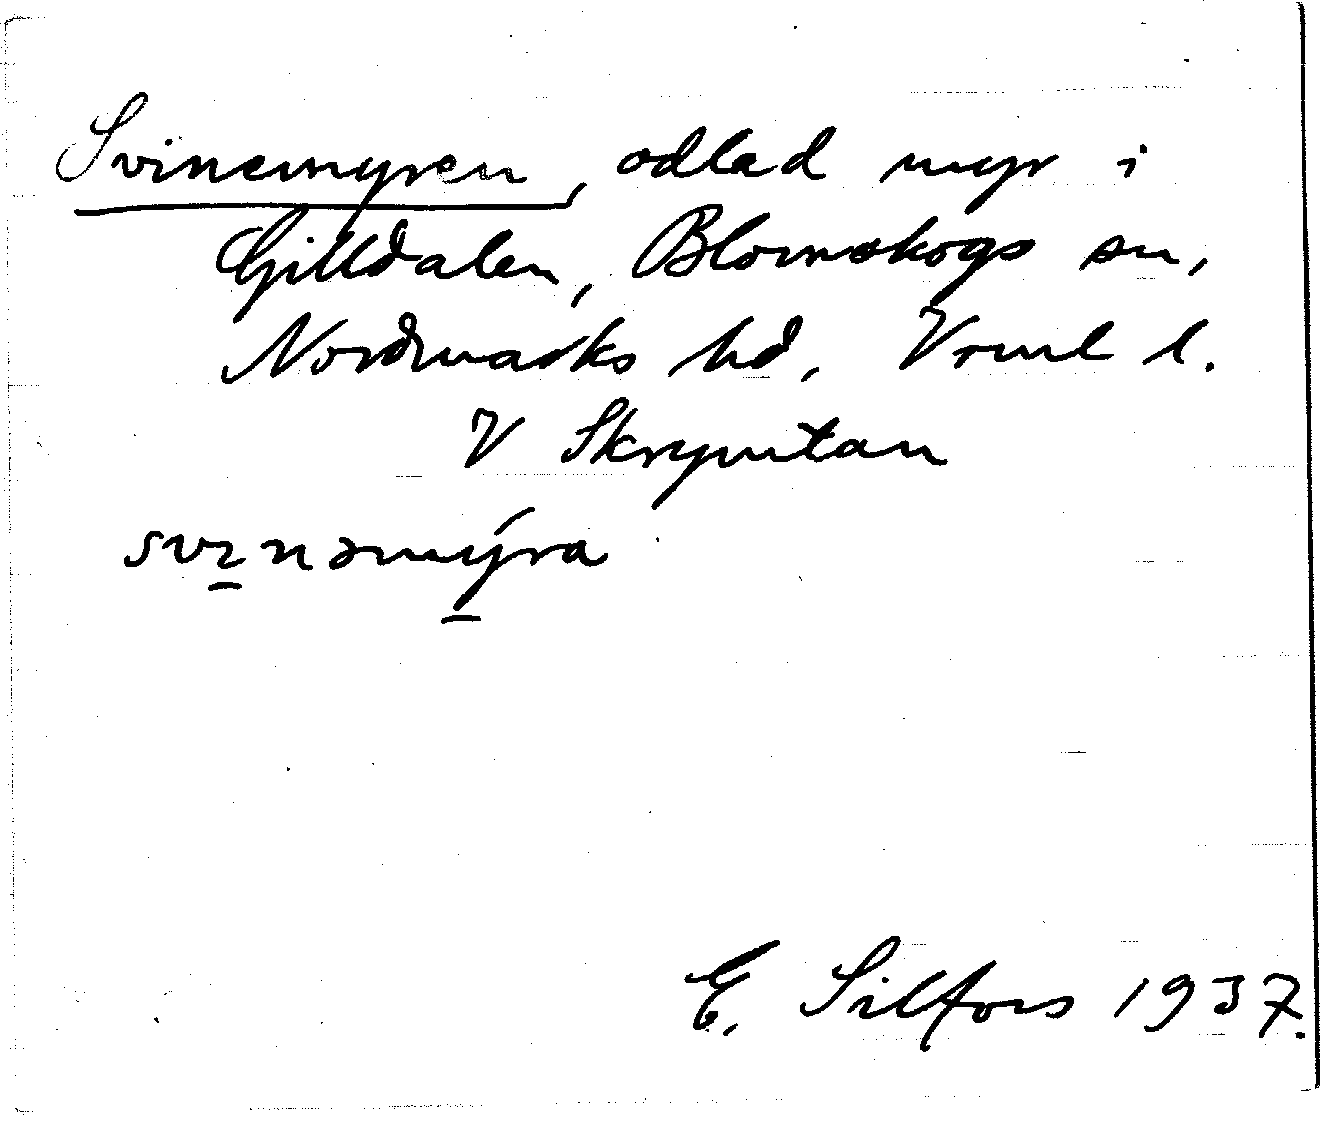 Svinemyren, odlad myr i
Gilldalen, Blomskogs sn,
Nordmarks hd, Vrml l.
V Skrymtan
svɪnəmýra
E. Silfors 1937.